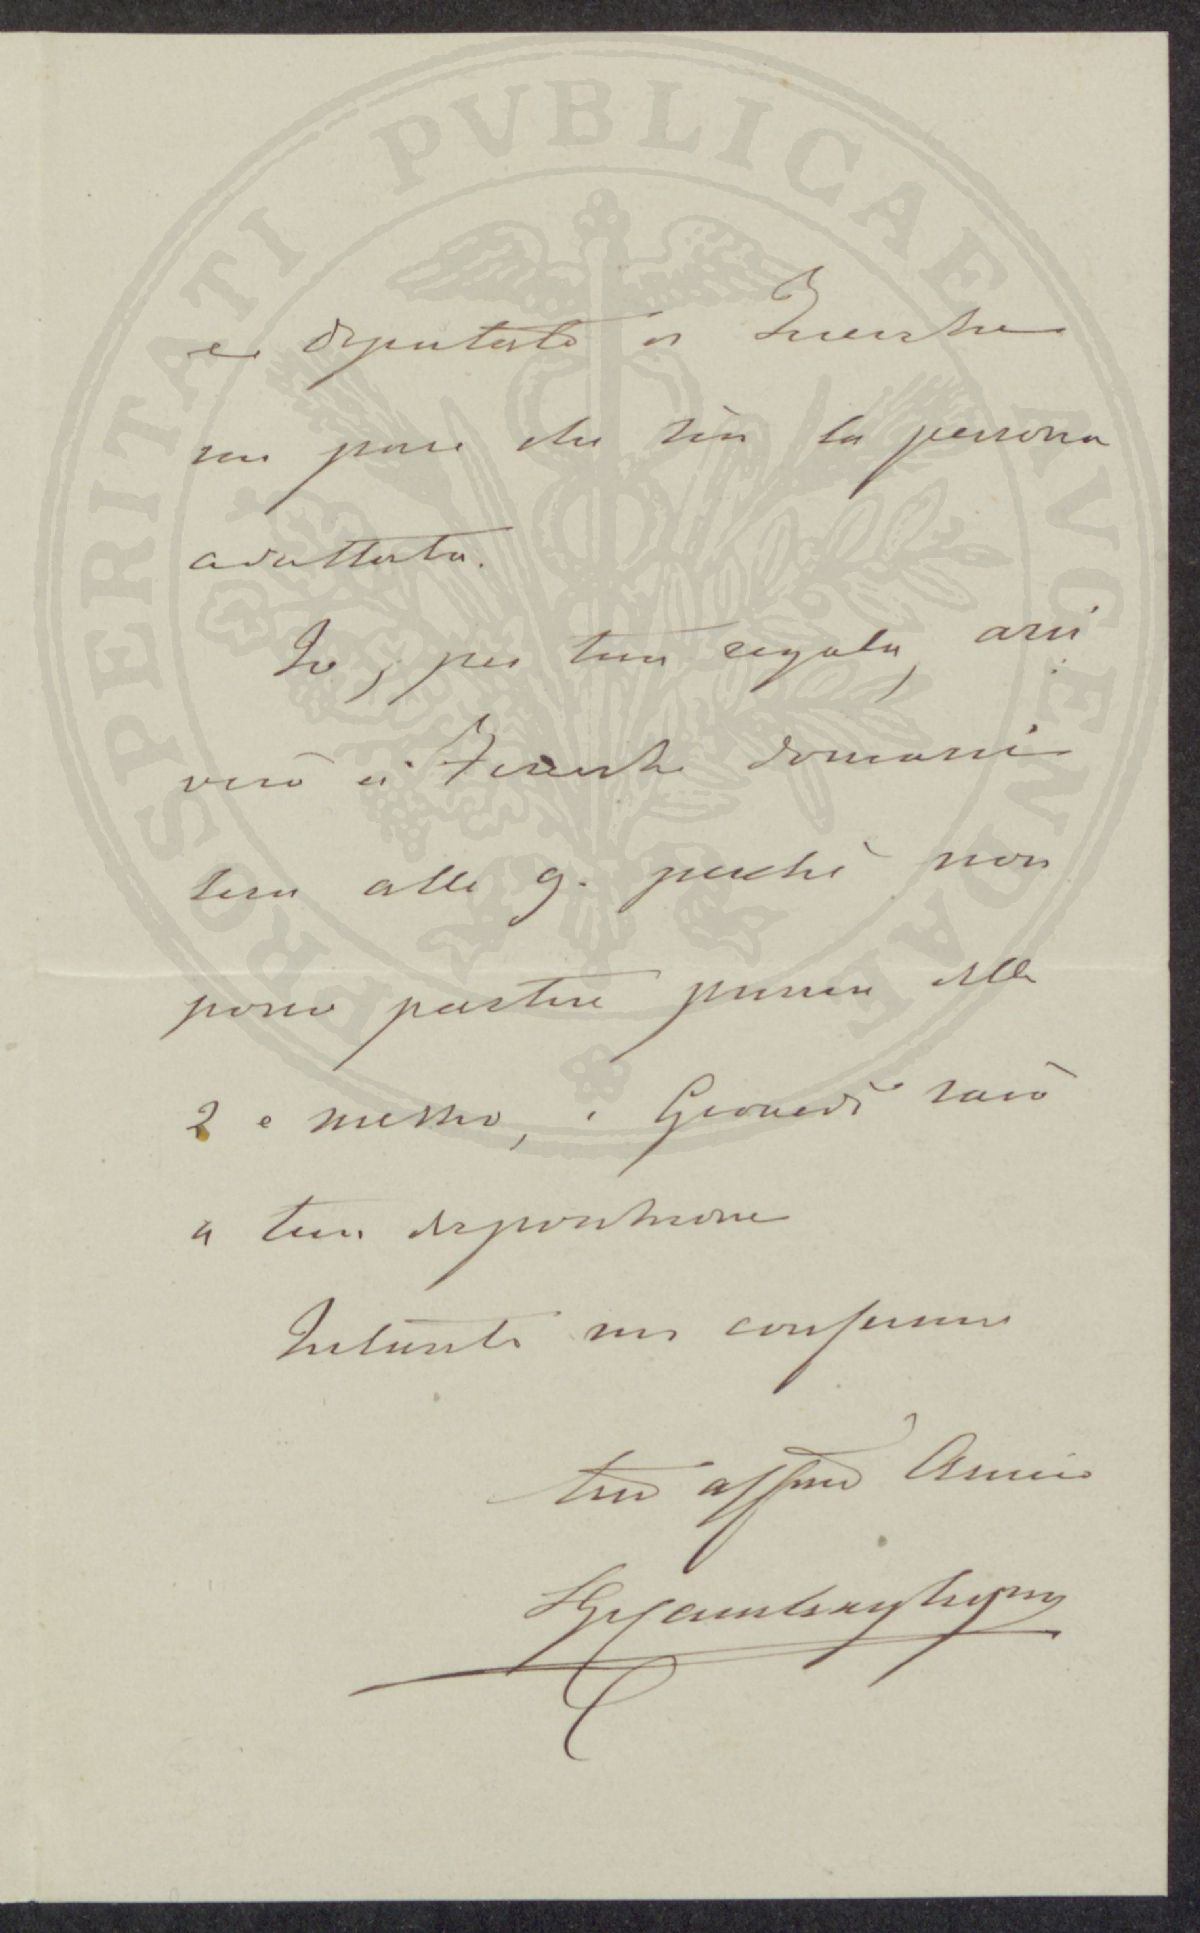 e deputato a Firenze
mi pare che sia la persona
adattata.
Io, per tua regola, arri
verò a Firenze domani
sera alle 9. perchè non
posso partire prima delle
2 e mezzo, e Giovedì sarò
a tua disposizione
Intanto mi confermo
tuo affmo Amico
PROSPERITATI PVBLICAE AVGENDAE